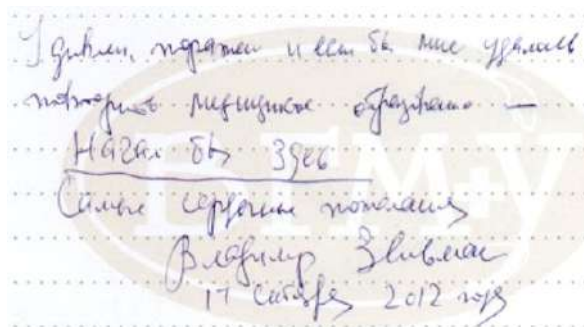 Удивлен, поражен и если бы мне удалось
повторить медицинское образование —
Начал бы здесь
Самые сердечные пожелания
Владимир
17 октября 2012 года
ВГМУ